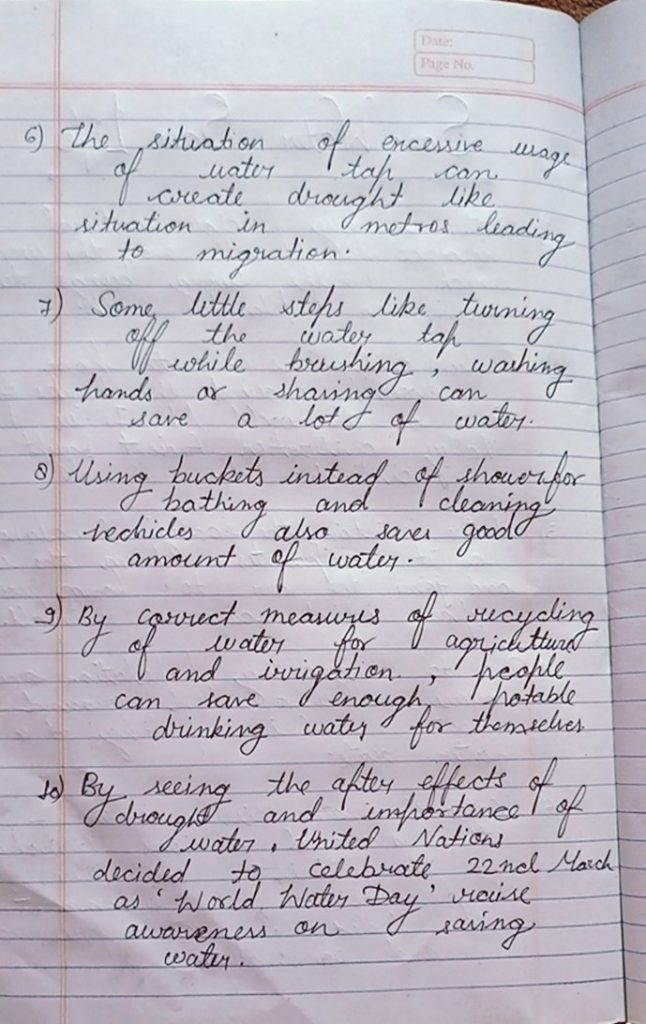 Date:
Page No.
6) The situation of excessive usage
of water tap can
create drought like
situation in metros leading
to migration.
7) Some little steps like turning
off the water tap
while brushing, washing
hands or shaving can
save a lot of water.
8) Using buckets instead of shower for
bathing and cleaning
vechicles also saves good
amount of water.
9) By correct measures of recycling
of water for agricutture
and irrigation, people
can save enough potable
drinking water for themselves
10) By seeing the after effects of
drought and importance of
water, United Nations
decided to celebrate 22nd March
as 'World Water Day' raise
awareness on saving
water.